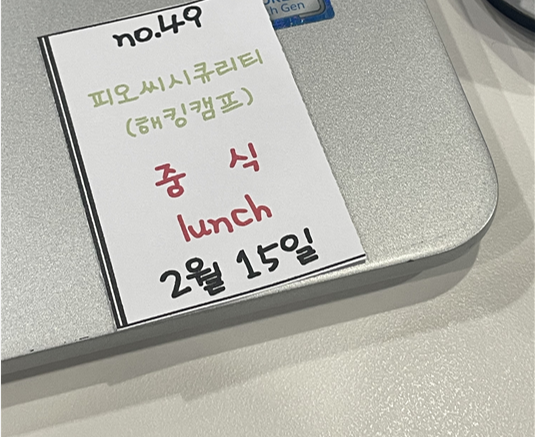 no.49
피오씨시큐리티
(해킹캠프)
중 식
lunch
2월 15일
Gen